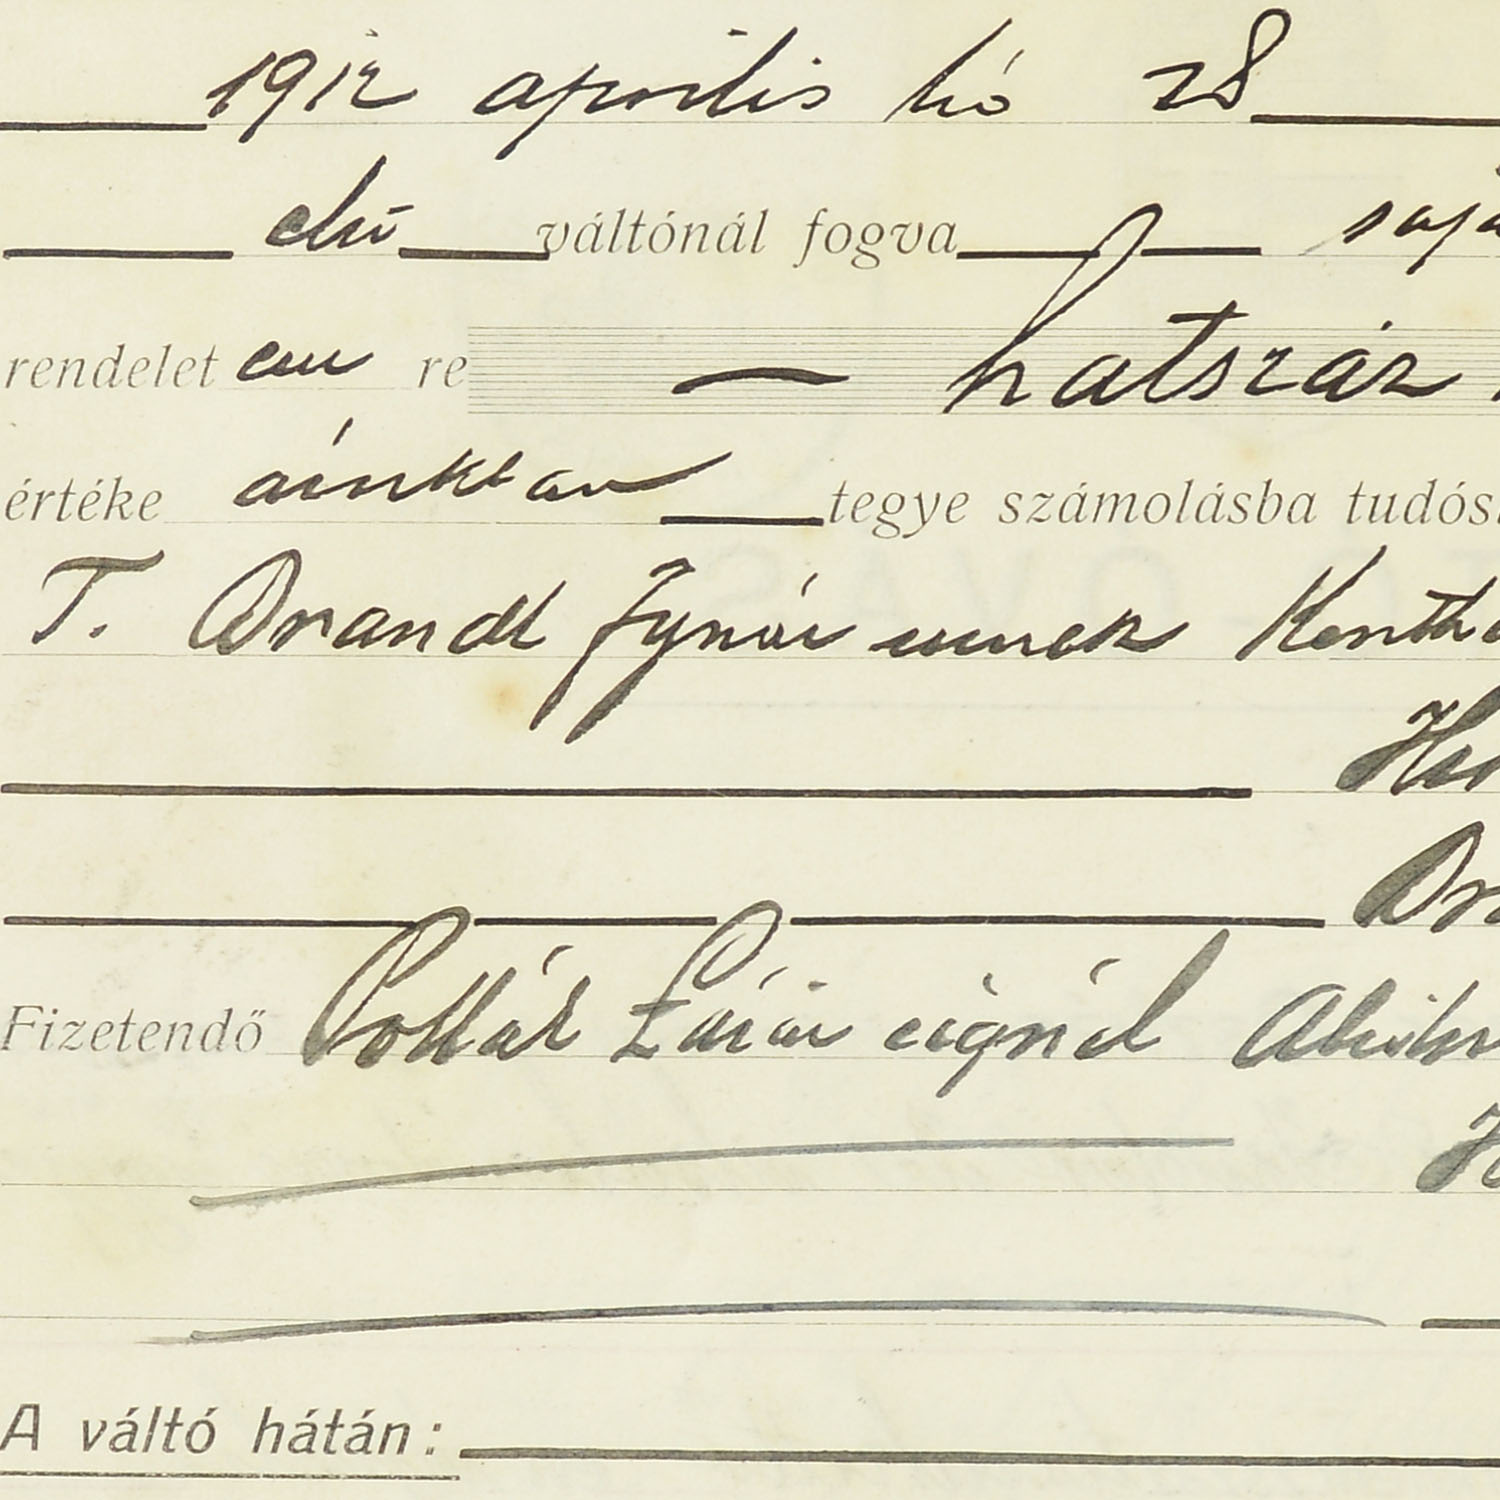 1912 április hó 28
első váltónál fogva saját
rendelet em re — hatszáz
értéke árukban tegye számolásba tudós
T. Brandt Ignác urnak
Fizetendő Pollák Lázár cégnél
A váltó hátán: